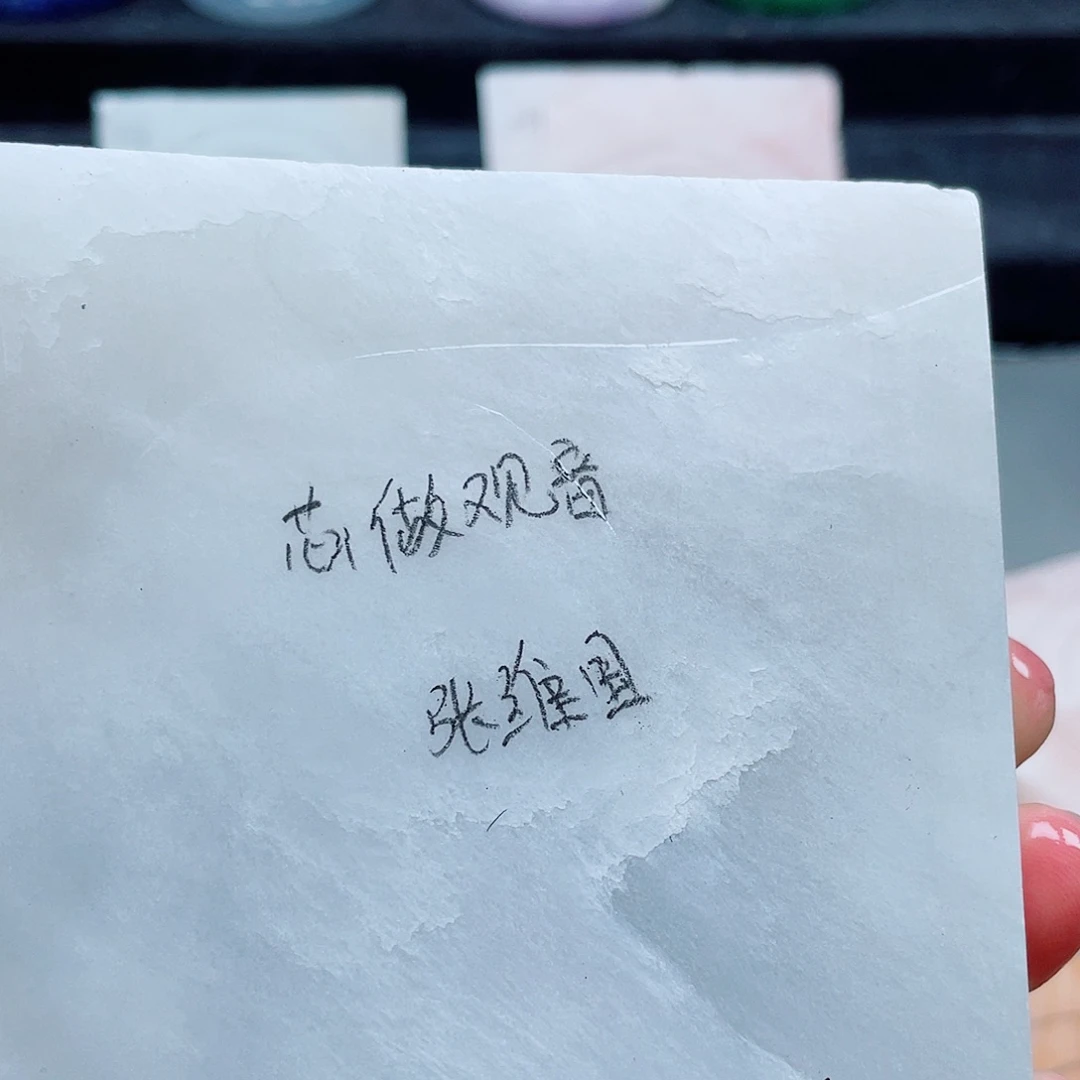 芯做观音
张维国